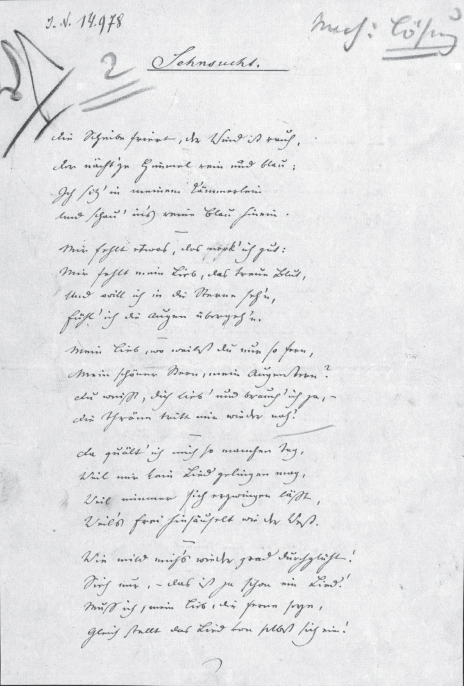 I. N. 14.978
2
Sehnsucht.
Die Scheibe friert, der Wind ist rauh,
Der nächt'ge Himmel rein und blau:
Ich sitz' in meinem Kämmerlein
Und schau' in's reine Blau hinein.
Mir fehlt etwas, das merk' ich gut:
Mir fehlt mein Lieb, das treue Blut,
Und will ich in die Sterne seh'n,
Fühl' ich die Augen übergeh'n.
Mein Lieb, wo weilst du nur so fern,
Mein schöner Stern, mein Augenstern?
Du weißt, dich lieb' und brauch' ich ja, –
Die Thräne tritt mir wieder nah!
Da quält' ich mich so manchen Tag,
Weil mir kein Lied gelingen mag,
Weil nimmer sich erzwingen läßt
Weil's frei hinsäuselt wie der West.
Wie mild mich's wieder grad durchglüht!
Sieh nur, – das ist ja schon ein Lied!
Muß ich, mein Lieb, dir ferne
Gleich stellt das Lied von selbst sich ein!